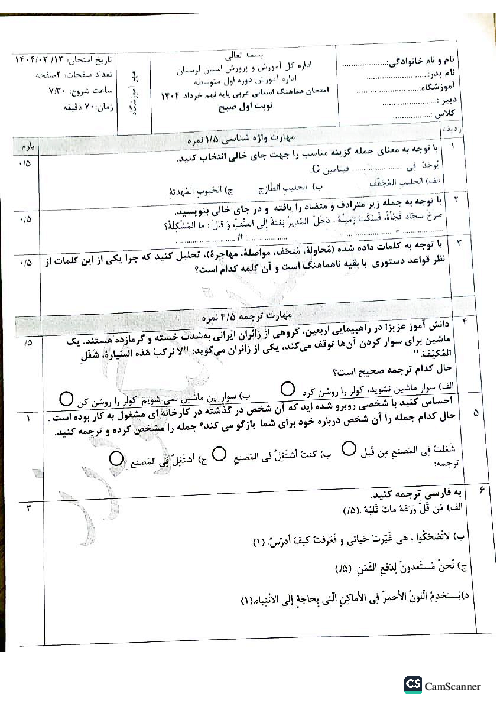 بسمه تعالی
اداره کل آموزش و پرورش استان لرستان
اداره آموزش دوره اول متوسطه
امتحان هماهنگ استانی عربی پایه نهم خرداد ۱۴۰۴
نوبت اول صبح
نام و نام خانوادگی:
نام پدر:
آموزشگاه:
دبیر:
کلاس
تاریخ امتحان: ۱۴۰۴/۰۲/۱۳
تعداد صفحات: ۲صفحه
ساعت شروع: ۷:۳۰
زمان: ۷۰ دقیقه
ردیف
مهارت واژه شناسی ۱/۵ نمره
بارم
۱
با توجه به معنای جمله گزینه مناسب را جهت جای خالی انتخاب کنید.
۰/۵
الف) الحلیب المجفف ب) الحلیب الطازج ج) الحبوب المهدئة
۲
با توجه به جمله زیر مترادف و متضاد را یافته و در جای خالی بنویسید.
۰/۵
۳
با توجه به کلمات داده شده (مُحاولة، مُتحف، مواصلة، مهاجرة)، تحلیل کنید که چرا یکی از این کلمات از
نظر قواعد دستوری با بقیه ناهماهنگ است و آن کلمه کدام است؟
۰/۵
مهارت ترجمه ۴/۵ نمره
۴
دانش آموز عزیز! در راهپیمایی اربعین، گروهی از زائران ایرانی به‌شدت خسته و گرمازده هستند. یک
ماشین برای سوار کردن آن‌ها توقف می‌کند، یکی از زائران می‌گوید: "لا نرکبُ هذه السیارةَ، شَغِّل
المُکَیِّفَ."
حال کدام ترجمه صحیح است؟
الف) سوار ماشین نشوید، کولر را روشن کرد ب) سوار این ماشین نمی شویم، کولر را روشن کن
۵
احساس کنید با شخصی روبرو شده اید که آن شخص در گذشته در کارخانه‌ای مشغول به کار بوده است.
حال کدام جمله را آن شخص درباره خود برای شما بازگو می کند؟ جمله را مشخص کرده و ترجمه کنید.
۱
ب) کنتُ أشتغِلُ فِی المَصنعِ ج) أشتَغِلُ فِی المَصنعِ
ترجمه:
۶
به فارسی ترجمه کنید.
۳
ب) لاتضحکوا، هی غَیَّرَت حیاتی و فعرفتُ کیفَ أدرسُ. (۱)
ج) نَحنُ مُستَعِدّونَ لِدَفعِ الثَّمَنِ (۰/۵)
د) یَستَخدِمُ اللّونُ الأحمرُ فِی الأماکنِ الَّتی بِحاجةٍ إلی الانتباهِ. (۱)
CS CamScanner